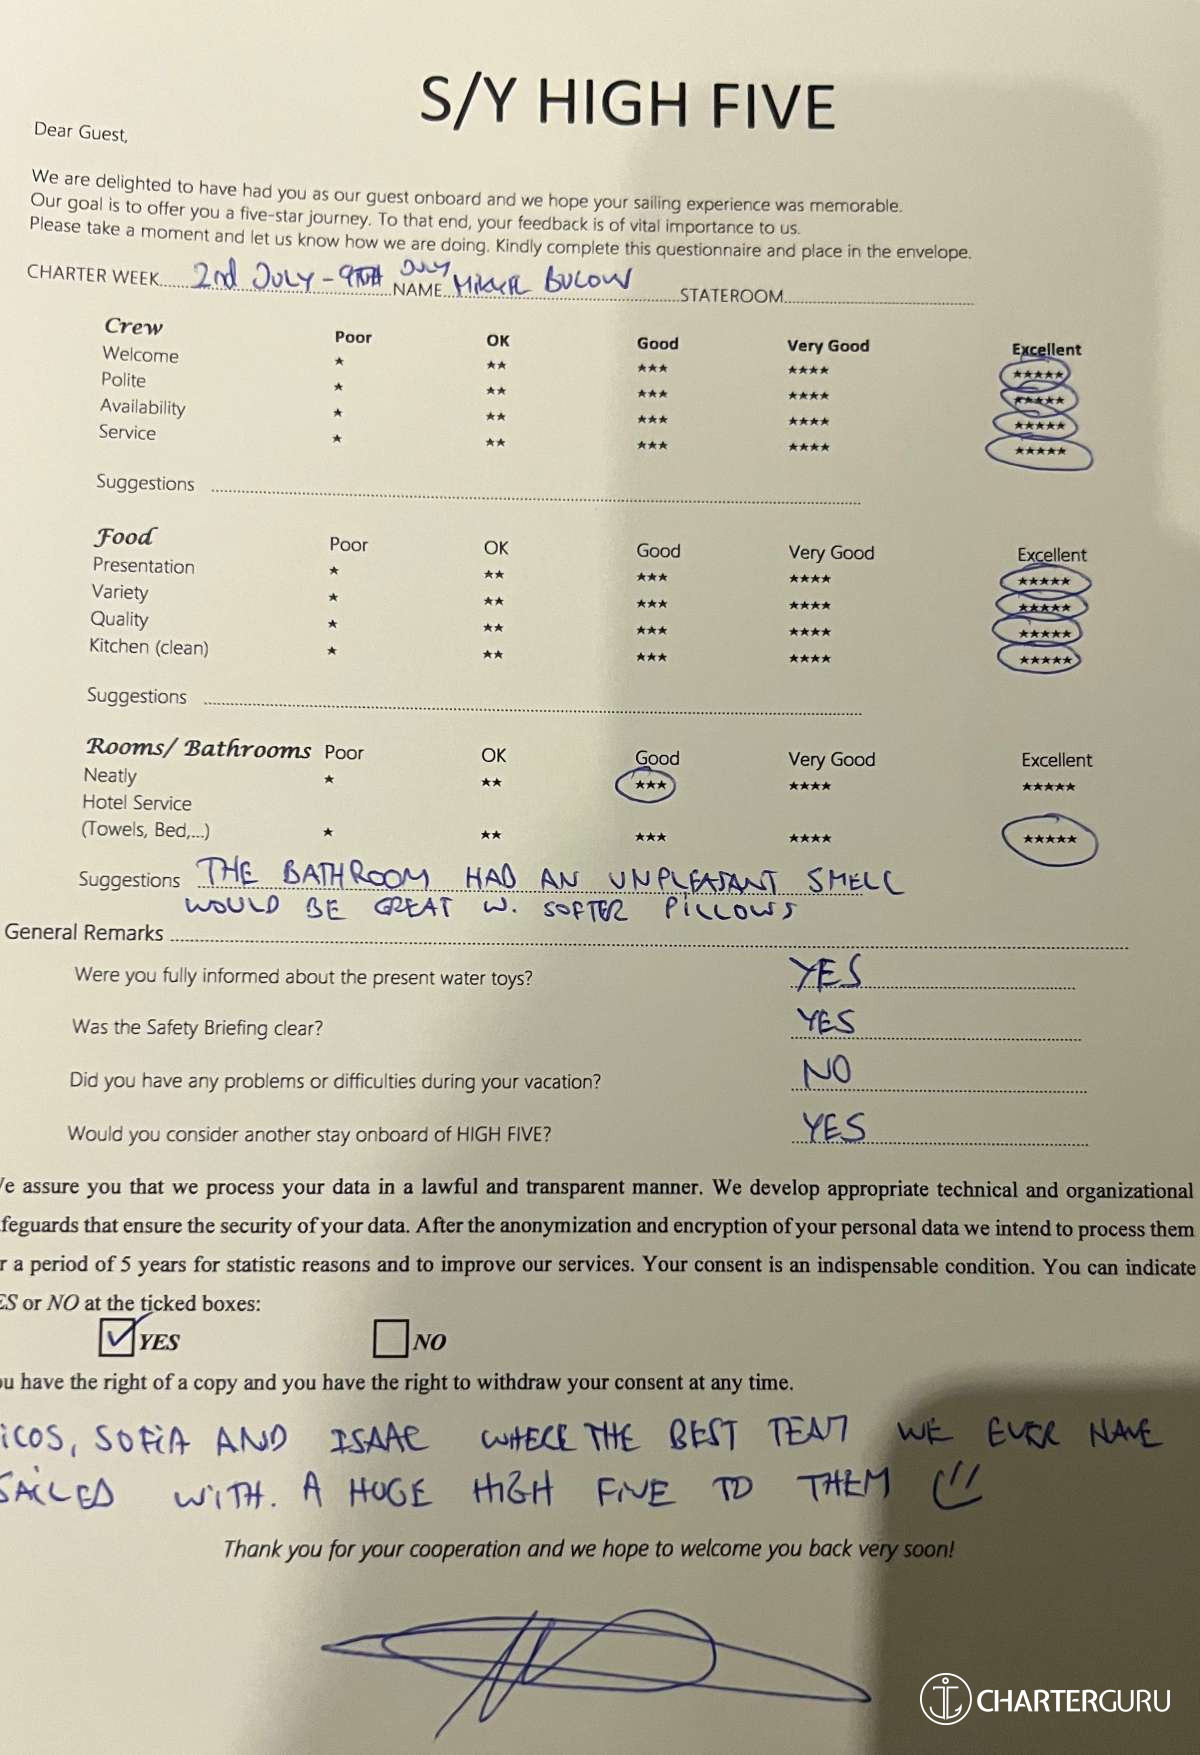 S/Y HIGH FIVE
Dear Guest,
We are delighted to have had you as our guest onboard and we hope your sailing experience was memorable.
Our goal is to offer you a five-star journey. To that end, your feedback is of vital importance to us.
Please take a moment and let us know how we are doing. Kindly complete this questionnaire and place in the envelope.
CHARTER WEEK 2nd JULY - 9TH JULY NAME BULOW STATEROOM
Crew Poor OK Good Very Good Excellent
Welcome ★ ★★ ★★★ ★★★★ ★★★★★
Polite ★ ★★ ★★★ ★★★★ ★★★★★
Availability ★ ★★ ★★★ ★★★★ ★★★★★
Service ★ ★★ ★★★ ★★★★ ★★★★★
Suggestions
Food Poor OK Good Very Good Excellent
Presentation ★ ★★ ★★★ ★★★★ ★★★★★
Variety ★ ★★ ★★★ ★★★★ ★★★★★
Quality ★ ★★ ★★★ ★★★★ ★★★★★
Kitchen (clean) ★ ★★ ★★★ ★★★★ ★★★★★
Suggestions
Rooms/ Bathrooms Poor OK Good Very Good Excellent
Neatly ★ ★★ ★★★ ★★★★ ★★★★★
Hotel Service
(Towels, Bed,...) ★ ★★ ★★★ ★★★★ ★★★★★
Suggestions THE BATHROOM HAD AN UNPLEASANT SMELL
WOULD BE GREAT W. SOFTER PILLOWS
General Remarks
Were you fully informed about the present water toys? YES
Was the Safety Briefing clear? YES
Did you have any problems or difficulties during your vacation? NO
Would you consider another stay onboard of HIGH FIVE? YES
e assure you that we process your data in a lawful and transparent manner. We develop appropriate technical and organizational
feguards that ensure the security of your data. After the anonymization and encryption of your personal data we intend to process them
r a period of 5 years for statistic reasons and to improve our services. Your consent is an indispensable condition. You can indicate
ES or NO at the ticked boxes:
YES NO
ou have the right of a copy and you have the right to withdraw your consent at any time.
ICOS, SOFIA AND ISAAC WHERE THE BEST TEAM WE EVER HAVE
SAILED WITH. A HUGE HIGH FIVE TO THEM
Thank you for your cooperation and we hope to welcome you back very soon!
CHARTERGURU